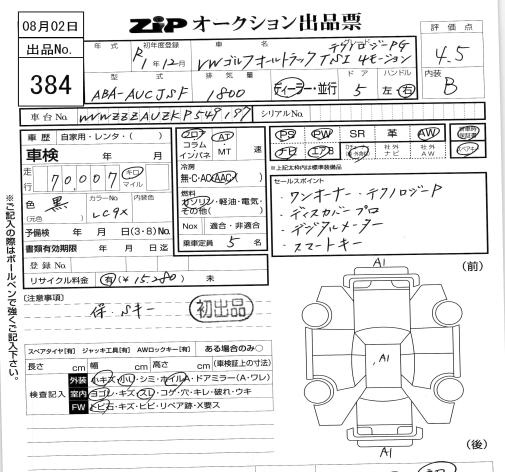 08月02日
ZiP オークション出品票
出品No. 384
年式 初年度登録 R1年12月
車名 VWゴルフオールトラック テクノロジーPG TSI 4モーション
評価点 4.5
型式 ABA-AUCJSF
排気量 1800
ディーラー・並行
ドア 5
ハンドル 左・右
内装 B
車台No. WVWZZZAUZKP549197
シリアルNo.
車歴 自家用・レンタ・( )
車検 年 月
走行 70,007 キロ マイル
色 黒 (元色)
カラーNo. LC9X
内装色
予備検 年 月 日(3・8)No.
書類有効期限 年 月 日迄
登録No.
リサイクル料金 有(¥15,280) 未
フロア コラム インパネ
AT MT 速
冷房 無・C・AC・AAC
燃料 ガソリン・軽油・電気・その他( )
Nox 適合・非適合
乗車定員 5 名
PS PW SR 革 AW
ナビ エアB 社外ナビ 社外AW
※上記太枠内は標準装備品
セールスポイント
・ワンオーナー・テクノロジーP
・ディスカバープロ
・デジタルメーター
・スマートキー
[注意事項]
保・Sキー
初出品
スペアタイヤ[有] ジャッキ工具[有] AWロックキー[有] ある場合のみ○
長さ cm 幅 cm 高さ cm (車検証上の寸法)
検査記入
外装 小キズ・小凹・シミ・ホイルA・ドアミラー(A・ワレ)
室内 ヨゴレ・キズ・スレ・コゲ・穴・キレ・破れ・ウキ
FW トビ石・キズ・ヒビ・リペア跡・X要ス
※ご記入の際はボールペンで強くご記入下さい。
A1
(前)
A1
A1
(後)